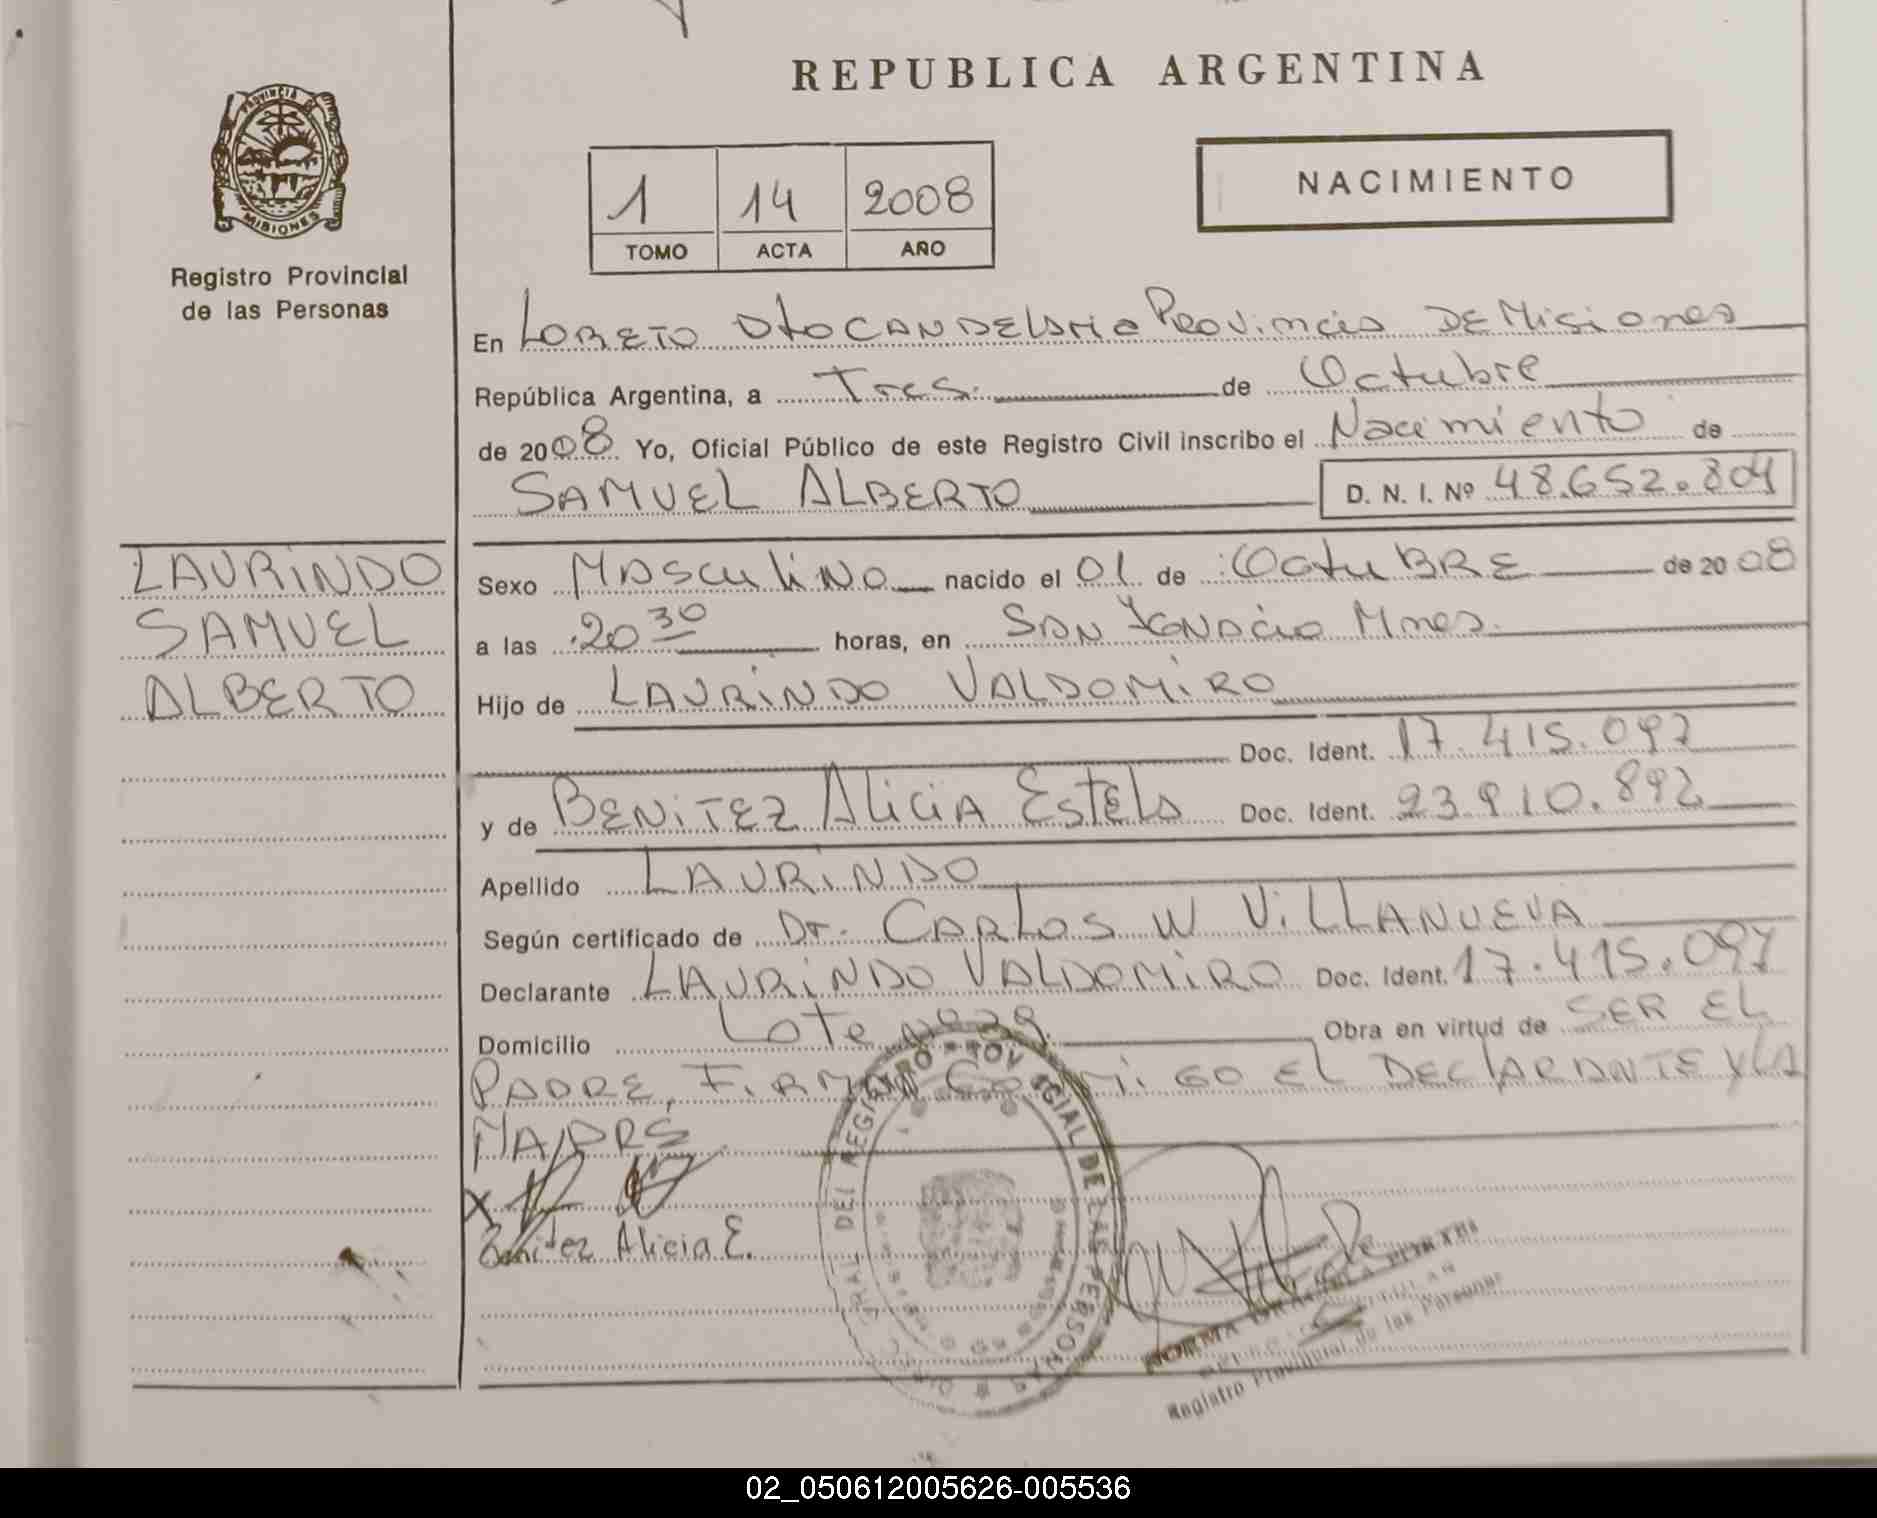 REPUBLICA ARGENTINA
PROVINCIA DE
MISIONES
Registro Provincial
de las Personas
1 14 2008
TOMO ACTA AÑO
NACIMIENTO
En LORETO Dto CANDELARIA Provincia DE Misiones
República Argentina, a Tres de Octubre
de 2008 Yo, Oficial Público de este Registro Civil inscribo el Nacimiento de
SAMUEL ALBERTO D. N. I. Nº 48.652.804
LAURINDO
SAMUEL
ALBERTO
Sexo MAsculiNo nacido el 01 de OctuBRE de 20 08
a las 20 30 horas, en SAN IGNAcio Mnes.
Hijo de LAURINDO VALDOMIRO
Doc. Ident. 17.415.097
y de BENITEZ AliciA EstelA Doc. Ident. 23.910.892
Apellido LAURINDO
Según certificado de Dr. CARLOS W VILLANUEVA
Declarante LAURINDO VALDOMIRO Doc. Ident. 17.415.097
Domicilio Lote Obra en virtud de SER EL
PADRE, FIRMAN CONMIGO EL DEClARANTE Y LA
MADRE
X
Benitez Alicia E.
REGISTRO PROVINCIAL DE LAS PERSONAS
NORMA
Registro Provincial de las Personas
02_050612005626-005536